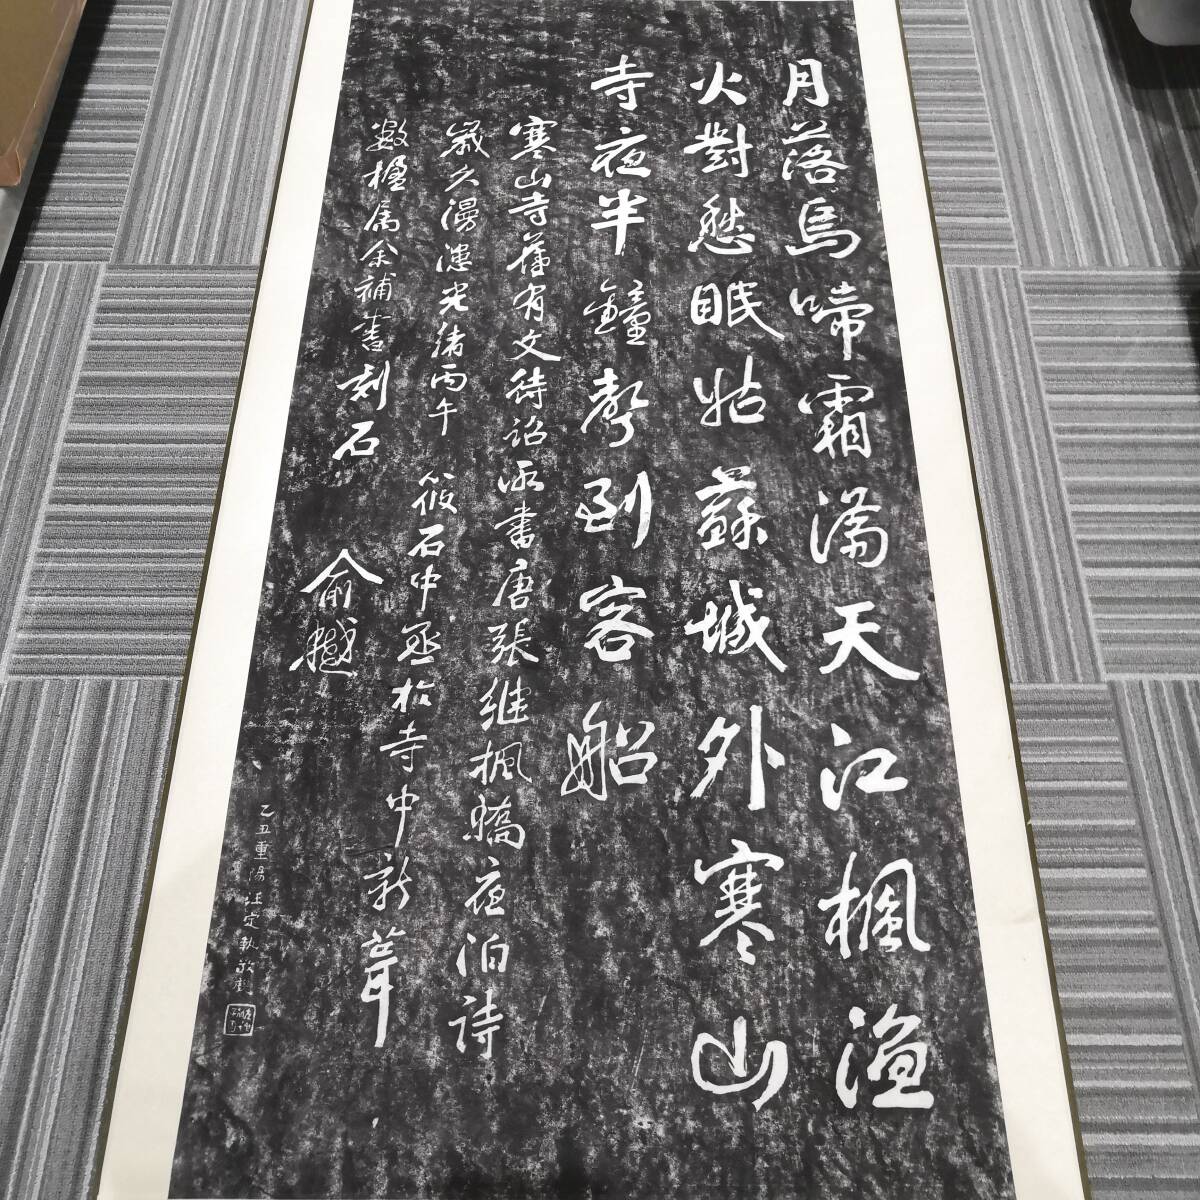 月落烏啼霜满天江楓渔
火對愁眠姑蘇城外寒山
寺夜半鐘聲到客船
寒山寺舊有文待詔所書唐張继楓橋夜泊詩
歲久漫漶光緒丙午 筱石中丞於寺中新葺
數楹属余補書刻石
俞樾
乙丑重陽汪定執敬